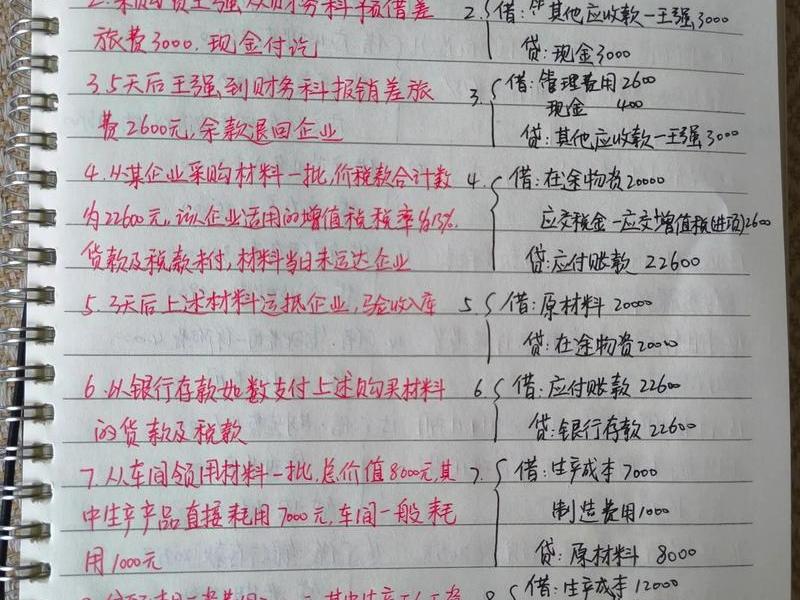 2.采购员王强从财务科预借差
旅费3000.现金付讫
2. 借:其他应收款—王强3000
贷:现金3000
3.5天后王强到财务科报销差旅
费2600元,余款退回企业
3. 借:管理费用2600
现金 400
贷:其他应收款—王强3000
4.从某企业采购材料一批,价税款合计数
为22600元,该企业适用的增值税税率为13%.
货款及税款未付,材料当日未运达企业
4. 借:在途物资20000
应交税金—应交增值税(进项)2600
贷:应付账款 22600
5.3天后上述材料运抵企业,验收入库
5. 借:原材料 20000
贷:在途物资20000
6.以银行存款如数支付上述购买材料
的货款及税款
6 借:应付账款 22600
贷:银行存款 22600
7.从车间领用材料一批,总价值8000元,其
中生产产品直接耗用7000元,车间一般耗
用1000元
7. 借:生产成本 7000
制造费用1000
贷:原材料 8000
8 借:生产成本 12000